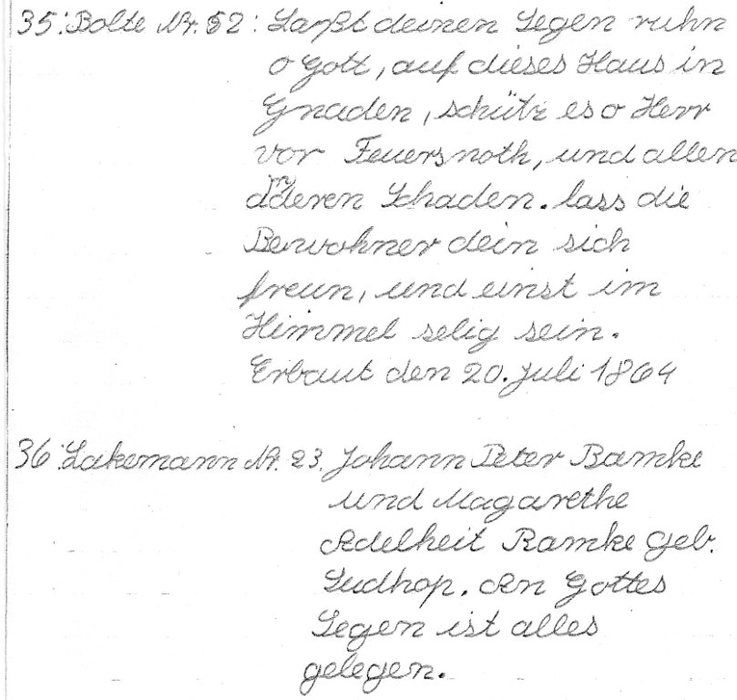 35: Bolte Nr. 52: Laßt deinen Segen ruhn
o Gott, auf dieses Haus in
Gnaden, schütz es o Herr
vor Feuersnoth, und allen
anderen Schaden. lass die
Bewohner dein sich
freun, und einst im
Himmel selig sein.
Erbaut den 20. Juli 1864
36: Lakemann Nr. 23. Johann Peter Ramke
und Magarethe
Adelheit Ramke geb.
Sudhop. An Gottes
Segen ist alles
gelegen.